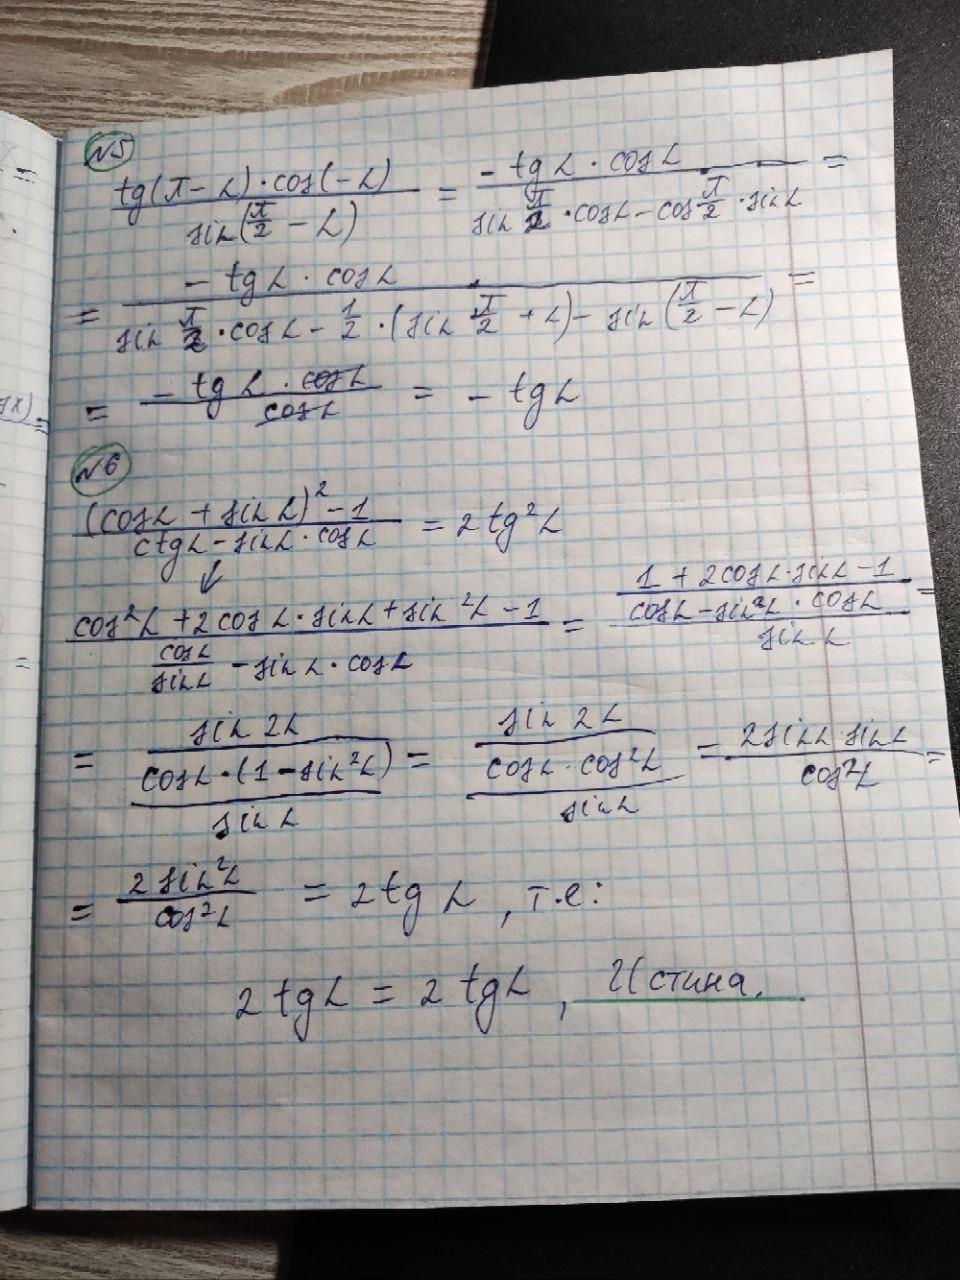 N5
tg(π - α) · cos(-α) / sin(π/2 - α) = - tg α · cos α / sin π/2 · cos α - cos π/2 · sin α =
= - tg α · cos α / sin π/2 · cos α - 1/2 · (sin π/2 + α) - sin (π/2 - α) =
= - tg α · cos α / cos α = - tg α
N6
(cos α + sin α)² - 1 / ctg α - sin α · cos α = 2 tg² α
cos² α + 2 cos α · sin α + sin² α - 1 / cos α / sin α - sin α · cos α = 1 + 2 cos α · sin α - 1 / cos α - sin² α · cos α / sin α =
= sin 2α / cos α · (1 - sin² α) / sin α = sin 2α / cos α · cos² α / sin α = 2 sin α · sin α / cos² α =
= 2 sin² α / cos² α = 2 tg α , т.е:
2 tg α = 2 tg α , Истина.